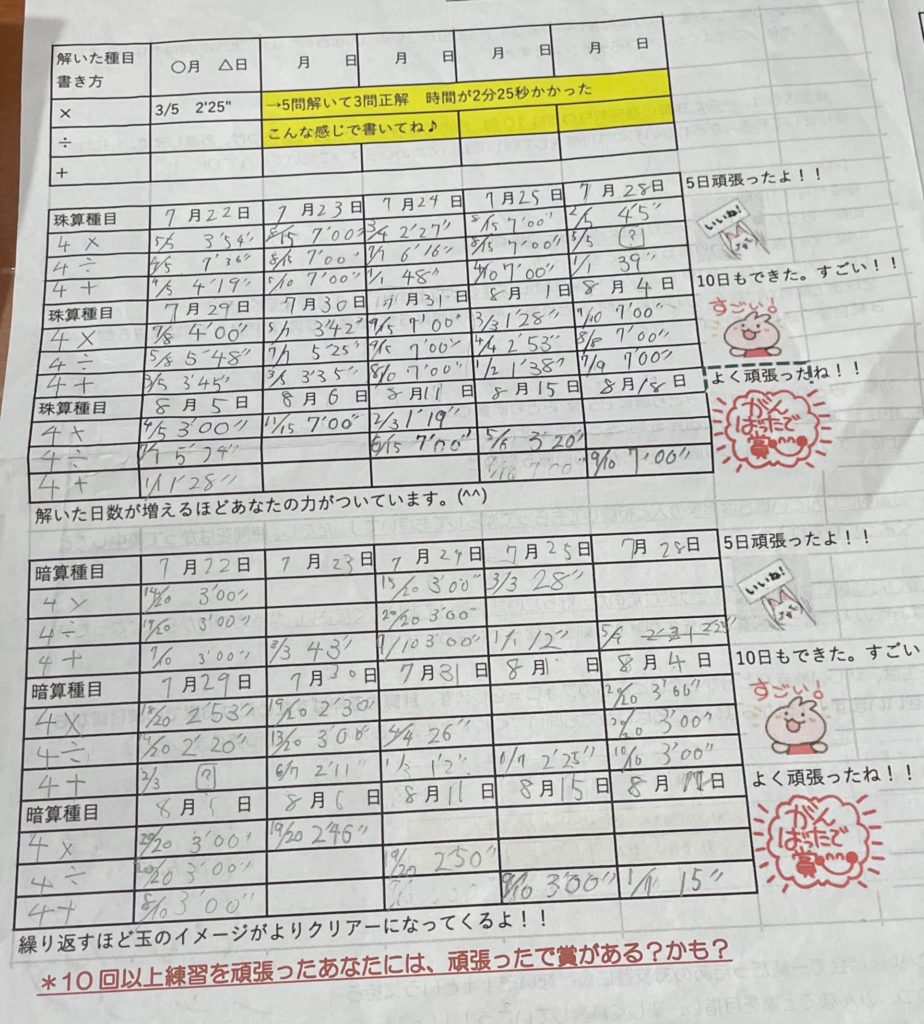 解いた種目 書き方 〇月 △日 月 日 月 日 月 日 月 日
× 3/5 2'25" →5問解いて3問正解 時間が2分25秒かかった
÷ こんな感じで書いてね♪
+
珠算種目 7月22日 7月23日 7月24日 7月25日 7月28日 5日頑張ったよ！！
いいね!
4× 5/5 3'54" 8/15 7'00" 3/4 2'27" 8/15 7'00" 2/5 4'5"
4÷ 4/5 7'36" 8/15 7'00" 7/7 6'16" 8/15 7'00" 5/5 ?
4+ 4/5 4'19" 5/10 7'00" 1/1 48" 4/10 7'00" 1/1 39"
珠算種目 7月29日 7月30日 7月31日 8月1日 8月4日 10日もできた。すごい！！
すごい!
4× 7/8 4'00" 5/7 3'42" 9/15 7'00" 3/3 1'28" 7/10 7'00"
4÷ 5/8 5'48" 7/7 5'25" 9/15 7'00" 4/4 2'53" 8/8 7'00"
4+ 3/5 3'45" 3/5 3'35" 8/10 7'00" 1/2 1'38" 7/9 7'00"
珠算種目 8月5日 8月6日 8月11日 8月15日 8月18日 よく頑張ったね！！
がんばったで賞
4× 4/5 3'00" 11/15 7'00" 2/3 1'19"
4÷ 6/15 7'00" 5/15 3'20"
4+ 1/1 1'28" 7'00" 9/10 7'00"
解いた日数が増えるほどあなたの力がついています。(^^)
暗算種目 7月22日 7月23日 7月24日 7月25日 7月28日 5日頑張ったよ！！
いいね!
4× 14/20 3'00" 15/20 3'00" 3/3 28"
4÷ 17/20 3'00" 20/20 3'00"
4+ 7/10 3'00" 3/3 43" 7/10 3'00" 1/1 12"
暗算種目 7月29日 7月30日 7月31日 8月1日 8月4日 10日もできた。すごい
すごい。
4× 18/20 2'53" 19/20 2'30 20/20 3'00"
4÷ 16/20 2'20" 13/20 3'00" 4/4 26" 20/20 3'00"
4+ 2/3 ? 6/7 2'11" 1/3 1'2" 6/7 2'25" 10/10 3'00"
暗算種目 8月5日 8月6日 8月11日 8月15日 8月日 よく頑張ったね！！
がんばったで賞
4× 20/20 3'00" 19/20 2'46"
4÷ 20/20 3'00" 19/20 2'50"
4+ 8/10 3'00" 9/10 3'00" 1/1 15"
繰り返すほど玉のイメージがよりクリアーになってくるよ！！
＊10回以上練習を頑張ったあなたには、頑張ったで賞がある？かも？